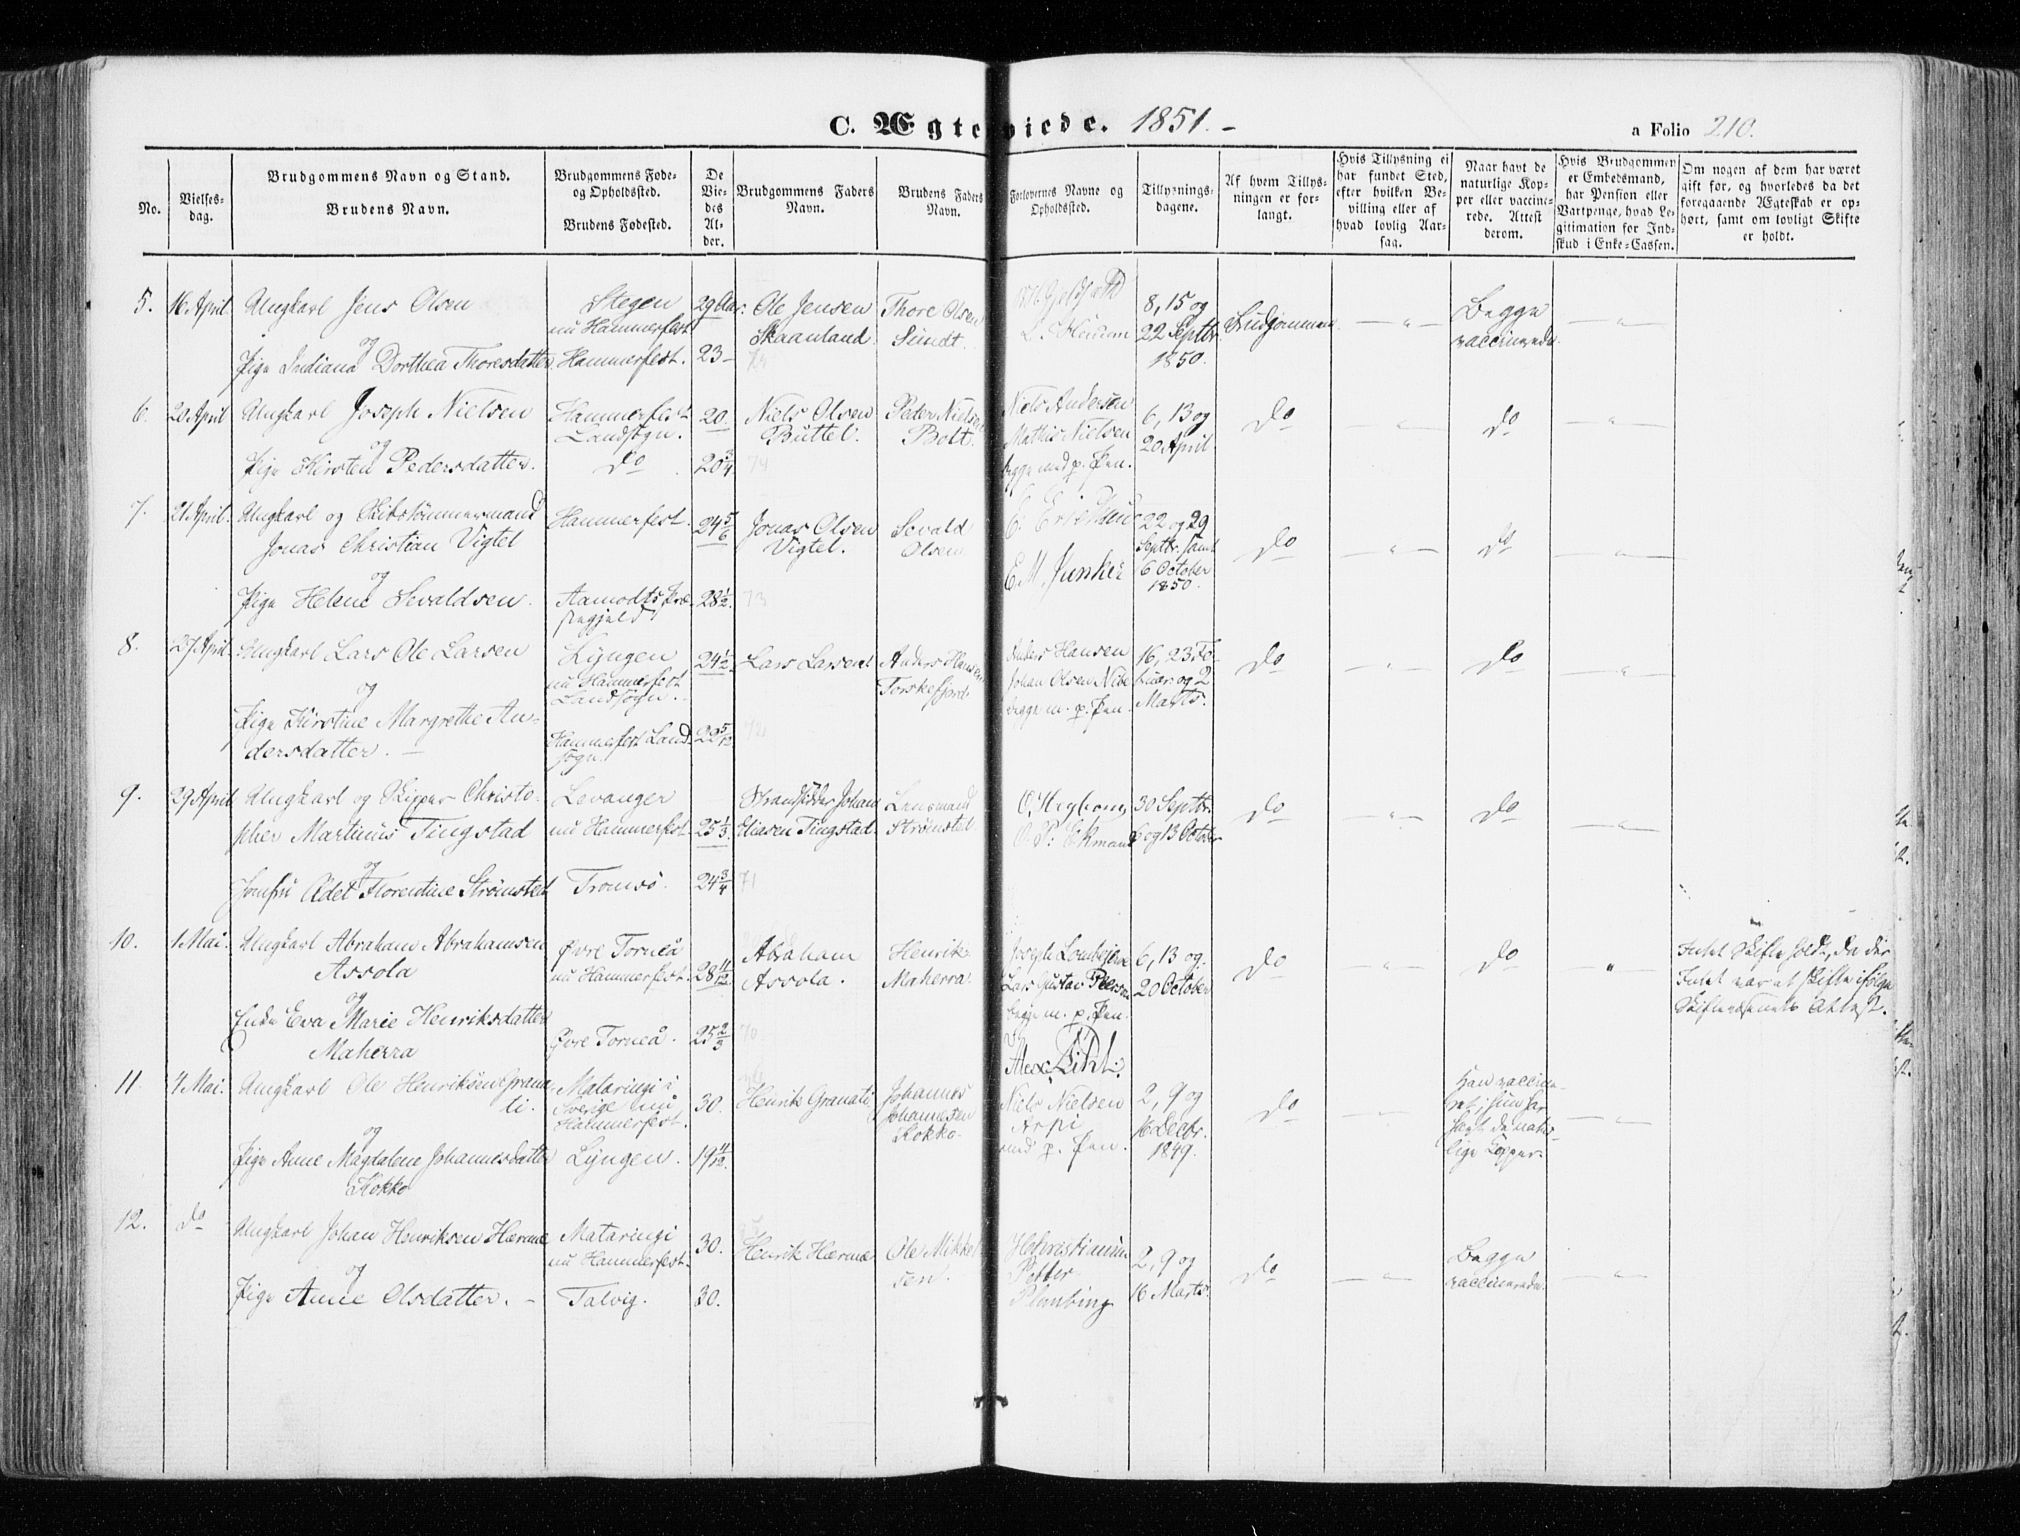 C. Ægteviede. 1851.
a Folio 210.
No.
Vielses-
dag.
Brudgommens Navn og Stand.
Brudens Navn.
Brudgommens Føde-
og Opholdssted.
Brudens Fødested.
De
Vie-
des
Al-
der.
Brudgommens Faders
Navn.
Brudens Faders
Navn.
Forlovernes Navne og
Opholdssted.
Tillysnings-
dagene.
Af hvem Tillys-
ningen er for-
langt.
Hvis Tillysning ei
har fundet Sted,
efter hvilken Be-
villing eller af
hvad lovlig Aar-
sag.
Naar havt de
naturlige Kop-
per eller vaccine-
rede. Attest
derom.
Hvis Brudgommen
er Embedsmand,
har Pension eller
Vartpenge, hvad Le-
gitimation for Ind-
skud i Enke-Cassen.
Om nogen af dem har været
gift før, og hvorledes da det
foregaaende Ægteskab er op-
hørt, samt om lovligt Skifte
er holdt.
5. 16 April.
Ungkarl Jens Olsen
og
Pige Indiana Dorthea Thoresdatter
Stegen
nu Hammerfest
Hammerfest.
29 Aar.
23 –
Ole Jensen
Skaanland.
Thore Olsen
Sundt.
8, 15 og
22 Septbr.
1850.
Brudgommen
Begge
vaccinerede.
6. 20 April
Ungkarl Joseph Nielsen
og
Pige Kirsten Pedersdatter.
Hammerfest
Landsogn.
do
20.
20 3/4
74
Niels Olsen
Buttel.
Peder Nielsen
Bolt.
Niels Andersen
Mathis Nielsen
begge med p. Pen.
6, 13 og
20 April
do
do
7. 21 April.
Ungkarl og Skibstømmermand
Jonas Christian Vigtel
og
Pige Helene Sevaldsen.
Hammerfest.
Aamodts Præ-
stegjeld
24 5/6
28 1/2.
73
Jonas Olsen
Vigtel.
Sevald
Olsen
E. M. Junker
22 og 29
Septbr. samt
6 October
1850.
do
do
8. 27 April.
Ungkarl Lars Ole Larsen
og
Pige Kirstine Margrethe An-
dersdatter.
Lyngen
nu Hammerfest
Landsogn.
Hammerfest Land-
sogn.
24 1/2
22 5/12
72
Lars Larsen
Anders Hansen
Torskefjord.
Anders Hansen
Johan Olsen
begge m. p. Pen.
16, 23 Fe-
bruar og 2
Marts.
do
do
9. 29 April
Ungkarl og Skipper Christo-
pher Martinus Tingstad
og
Jomfru Adet Florentine Strømsted
Levanger
nu Hammerfest.
Tromsø.
25 1/3.
24 3/4
71
Strandsidder Johan
Eliasen Tingstad.
Lensmand
Strømsted
O. P. Ekman
30 Septbr.
6 og 13 October
do
do
10. 1 Mai.
Ungkarl Abraham Abrahamsen
Assola
og
Enke Eva Marie Henriksdatter
Maherra
Øvre Torneå
nu Hammerfest.
Øvre Torneå.
28 11/12
25 2/3
70
Abraham
Assola.
Henrik
Maherra
Lars Gustav
begge m. p. Pen.
6, 13 og
20 October
do
do
Intet Skifte holdt, da der
Intet var at skifte ifølge
Skifterettens Attest.
11. 4 Mai.
Ungkarl Ole Henriksen Grana-
ti.
og
Pige Anne Magdalene Johannesdatter
Kokko
Mataringi i
Sverige nu
Hammerfest.
Lyngen.
30.
19 11/12.
Henrik Granati
Johannes
Johannesen
Kokko.
Niels Nielsen
Arpi
med p. Pen.
2, 9 og
16 Decbr.
1849.
do
Han vaccine-
ret; hun har
havt de natur-
lige Kopper.
12. do
Ungkarl Johan Henriksen Hærme
og
Pige Anne Olsdatter.
Mataringi
nu Hammerfest.
Talvig.
30.
30.
Henrik Hærme
Ole Mikkel-
sen.
Plambing
2, 9 og
16 Marts.
do
Begge
vaccinerede.